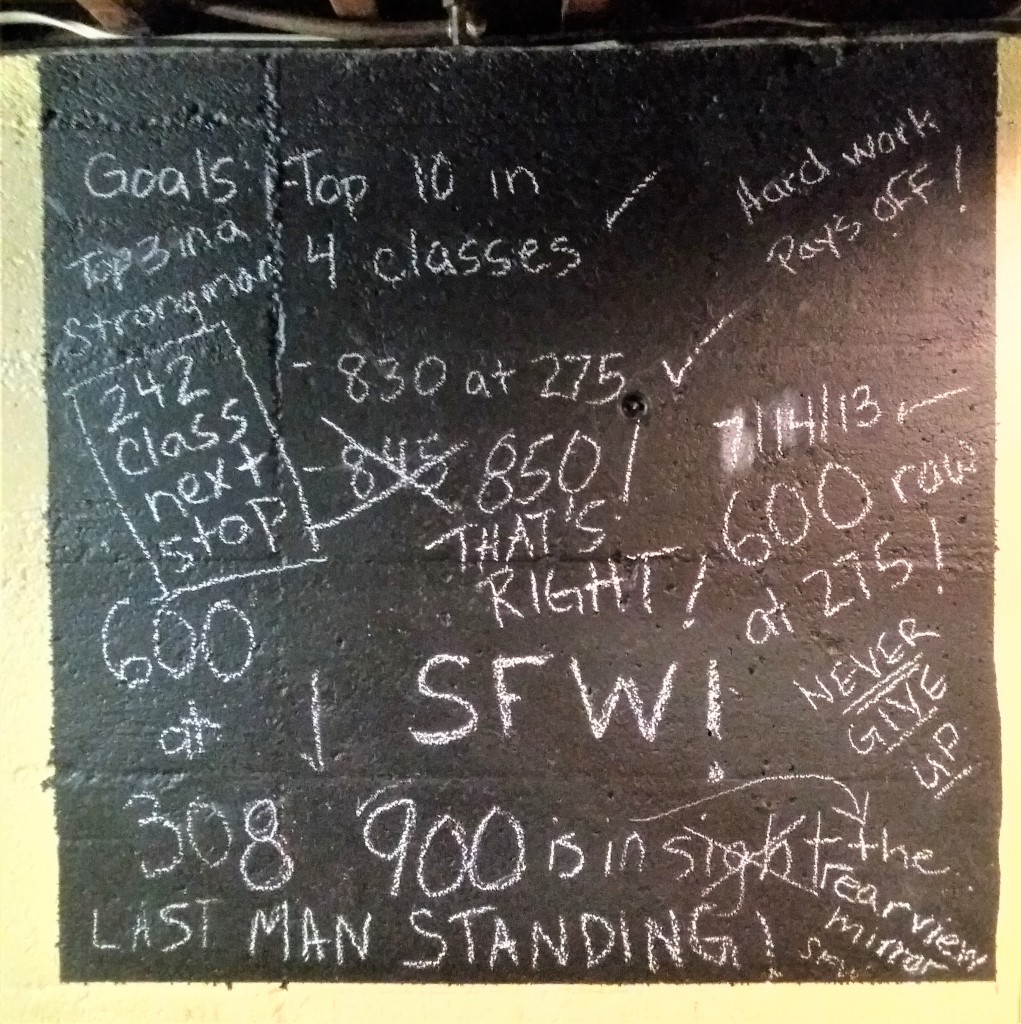 Goals
Top 3 in a
Strongman
242
class
next
stop
600
at
308
-Top 10 in
4 classes ✓
- 830 at 275 ✓
- 845 850!
THAT'S
RIGHT!
Hard work
Pays off!
7/14/13
600 raw
at 275!
NEVER
GIVE
UP
SFW!
900 is in sight the
rearview
mirror
LAST MAN STANDING!